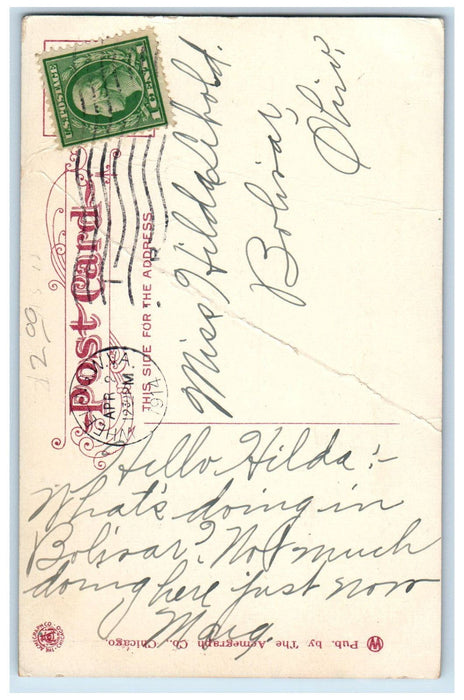 U.S. POSTAGE
1 CENT 1
APR 2
12 30 PM
1914
Post Card
THIS SIDE FOR THE ADDRESS
12.00
Miss Hilda Lebold.
Bolivar,
Ohio.
Hello Hilda:-
What's doing in
Bolivar? Not much
doing here just now
Marg.
Pub. by The Acmegraph Co. Chicago.